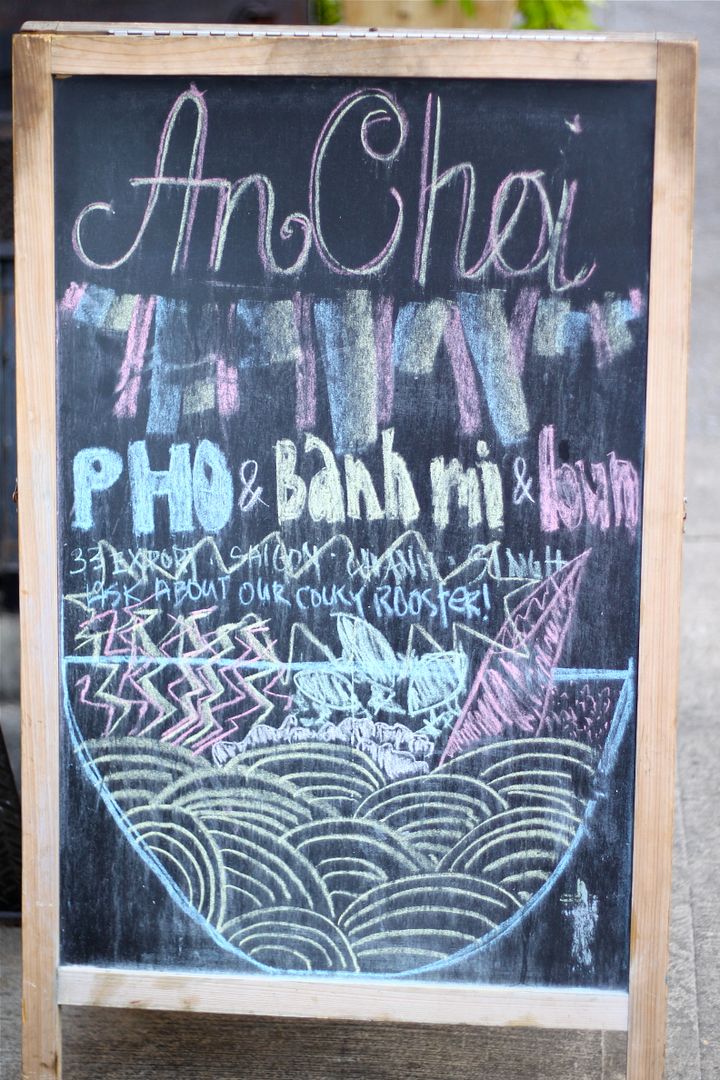 AnChoi
PHO & Banh mi & bun
33 EXPORT · SAIGON ·
ASK ABOUT OUR COUKY ROOSTER!